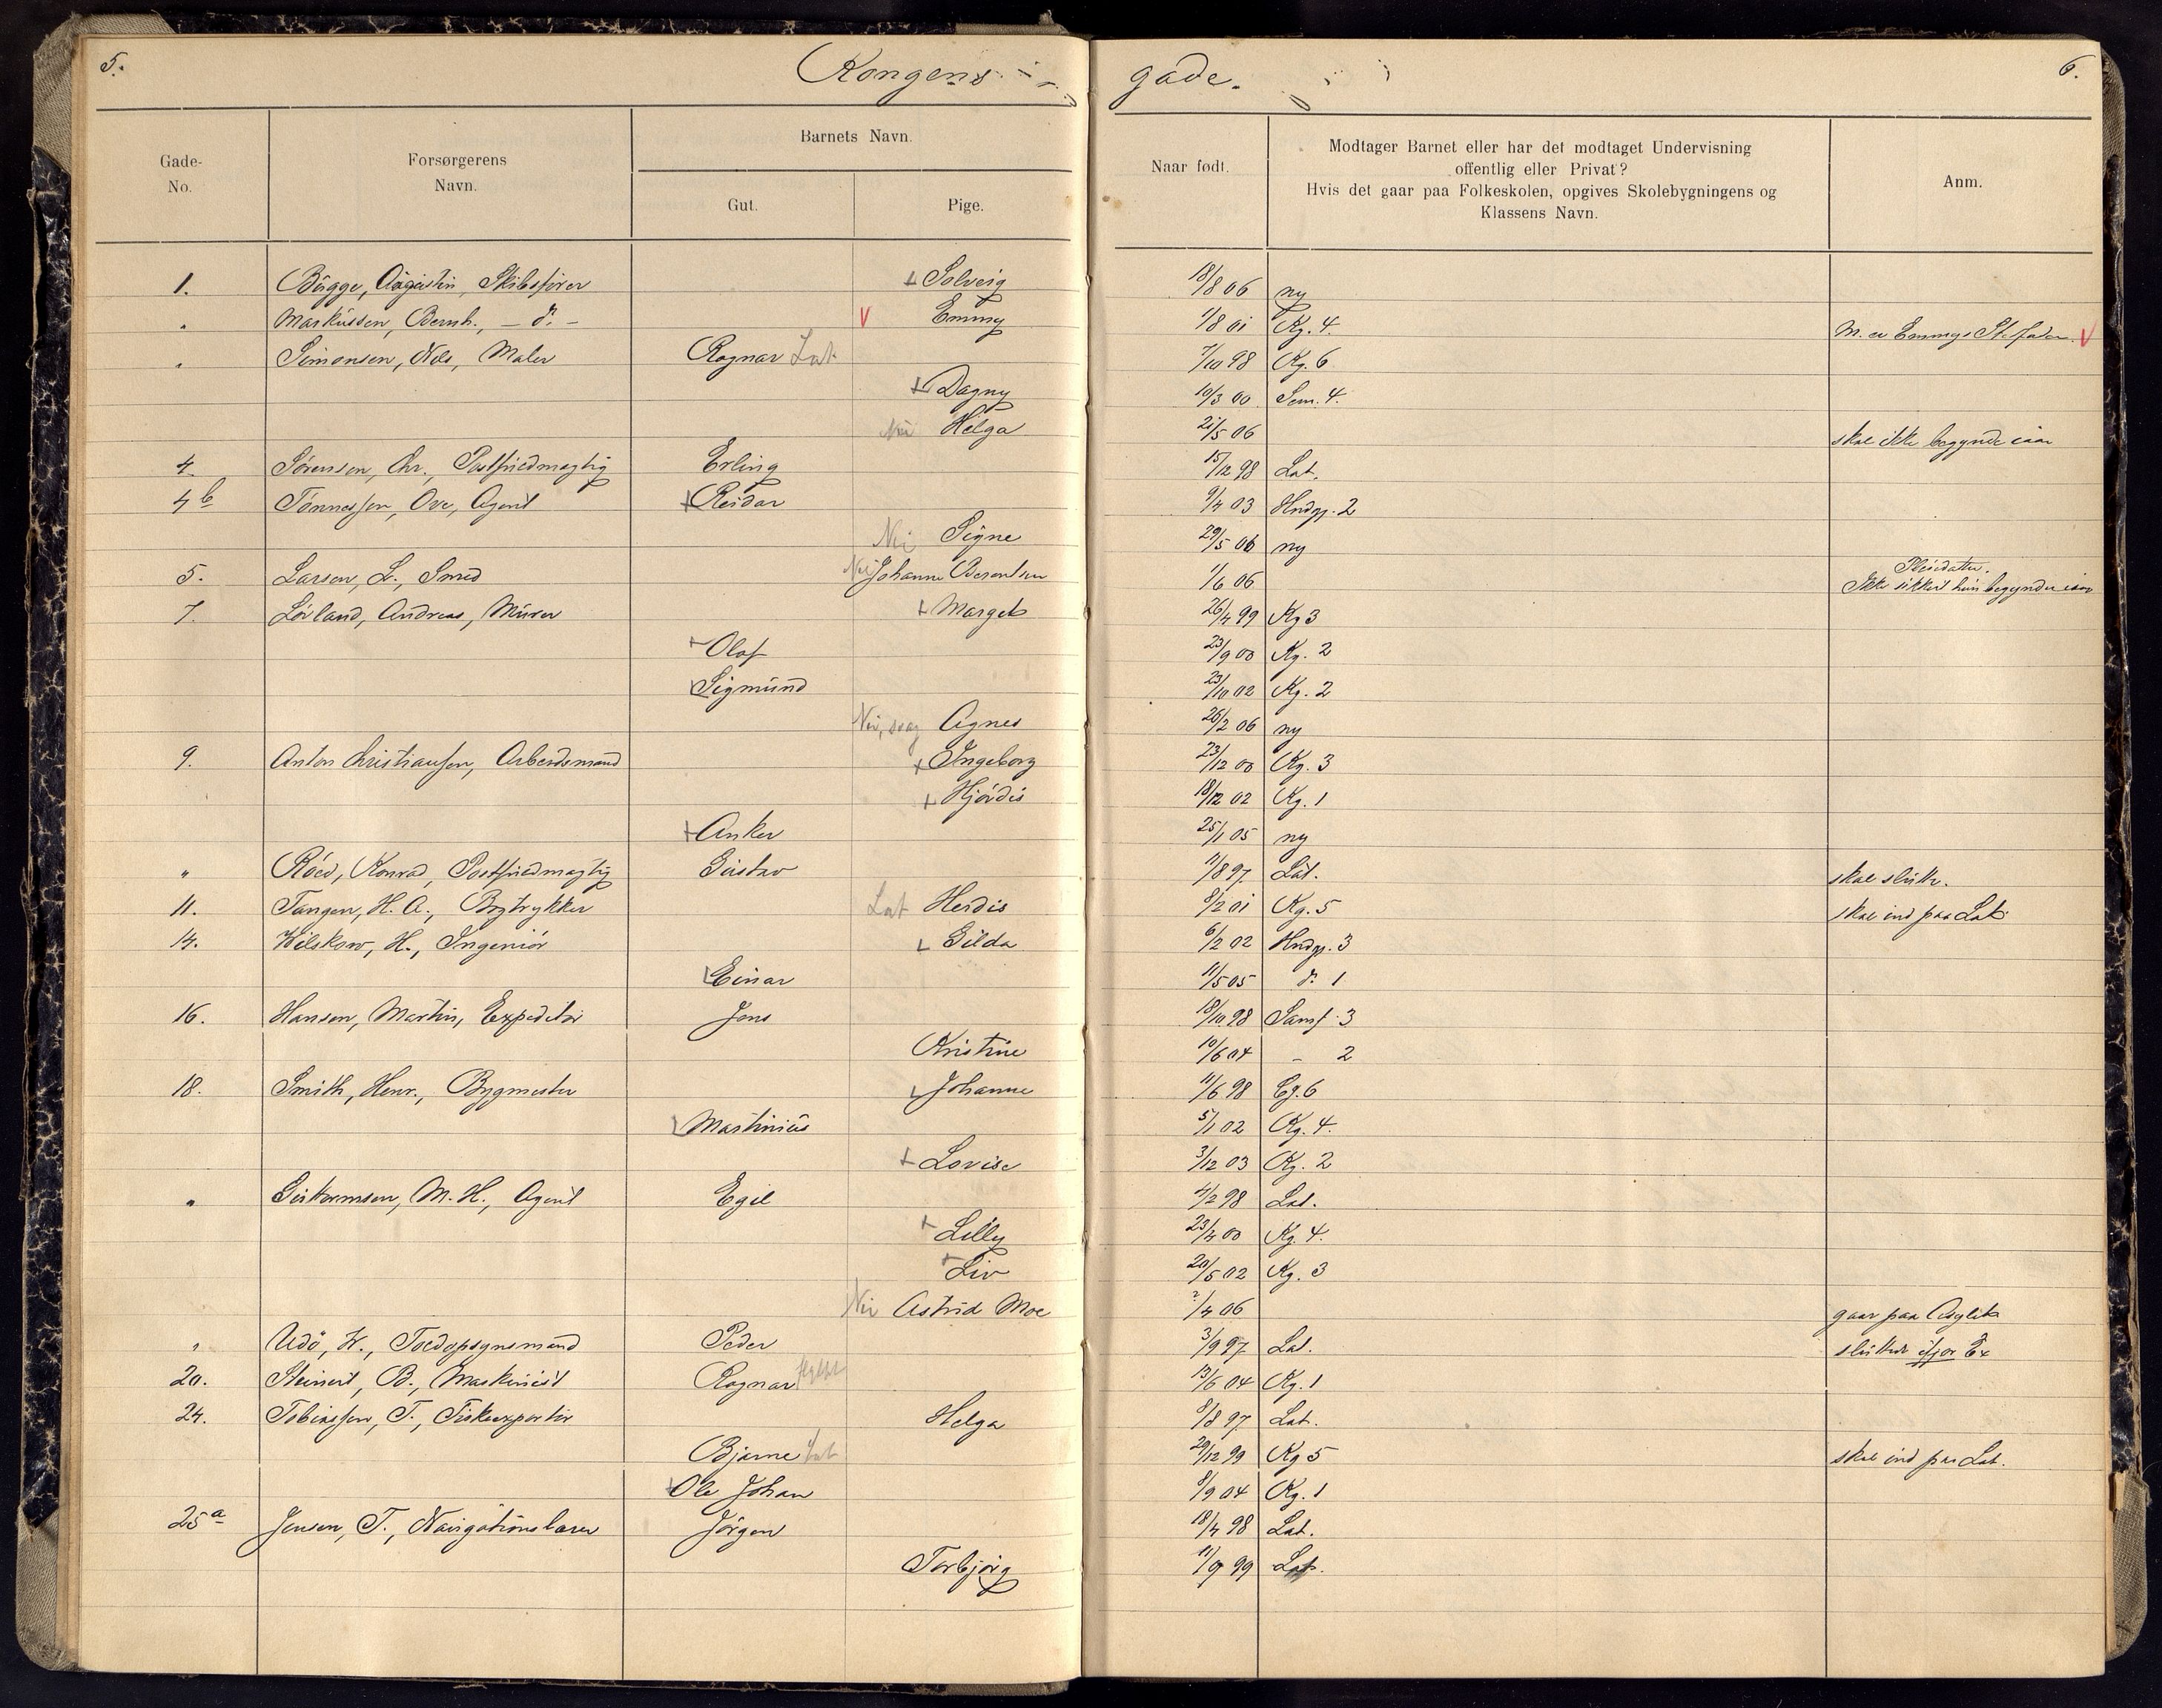 5.
Kongens-
gade.
6.
Gade-No.
Forsørgerens Navn.
Barnets Navn.
Gut.
Pige.
Naar født.
Modtager Barnet eller har det modtaget Undervisning
offentlig eller Privat?
Hvis det gaar paa Folkeskolen, opgives Skolebygningens og
Klassens Navn.
Anm.
1. Bugge, Augustin, Skibsfører Solveig 18/8 06 ny
" Markussen, Bernh., - do - V Emmy 7/8 01 Kg. 4. M. er Emmys Stefader. V
" Simonsen, Nils, Maler Ragnar Lat 7/10 98 Kg. 6
Dagny 10/3 00 Sem. 4.
Nei Helga 21/5 06 skal ikke begynde iaar
4. Sørensen, Chr., Postfuldmægtig Erling 15/12 98 Lat.
4b Tønnessen, Ove, Agent Reidar 9/4 03 Hndg. 2
Nei Signe 29/5 06 ny
5. Larsen, L., Smed Nei Johanne Berentsen 1/6 06 Pleiedatter. Ikke sikkert hun begynder iaar
7. Lørland, Andreas, Murer Margit 26/4 99 Kg 3
Olaf 23/9 00 Kg. 2
Sigmund 23/10 02 Kg. 2
Nei, svag Agnes 26/2 06 ny
9. Anton Christiansen, Arbeidsmand Ingeborg 23/12 00 Kg. 3
Hjørdis 18/12 02 Kg. 1
Anker 25/1 05 ny
" Røed, Konrad, Postfuldmægtig Gustav 11/8 97 Lat. skal slutte.
11. Tangen, H. A., Bogtrykker Lat Herdis 8/2 01 Kg. 5 skal ind paa Lat.
14. Wilskow, H., Ingeniør Gilda 6/2 02 Hndg. 3
Einar 11/5 05 do 1
16. Hansen, Martin, Expeditør Jens 18/10 98 Samf. 3
Kristine 10/6 04 - 2
18. Smith, Henr., Bygmester Johanne 11/6 98 Eg. 6
Martinius 5/1 02 Kg. 4.
Lovise 3/12 03 Kg. 2
" M. H., Agent Egil 4/2 98 Lat.
Lilly 23/4 00 Kg. 4.
Liv 20/5 02 Kg. 3
Nei Astrid Moe ?/4 06 gaar paa Asylet
" Udø, W., Toldopsynsmand Peder 3/9 97 Lat. sluttede ifjor Ex
20. Steinert, B., Maskinist Ragnar flyttet 13/6 04 Kg. 1
24. Tobiassen, T., Fiskeexportør Helga 8/8 97 Lat.
Bjarne Lat 29/12 99 Kg 5 skal ind paa Lat.
Ole Johan 8/9 04 Kg. 1
25a Jensen, T., Navigationslærer Jørgen 18/4 98 Lat.
Torbjørg 11/9 99 Lat.